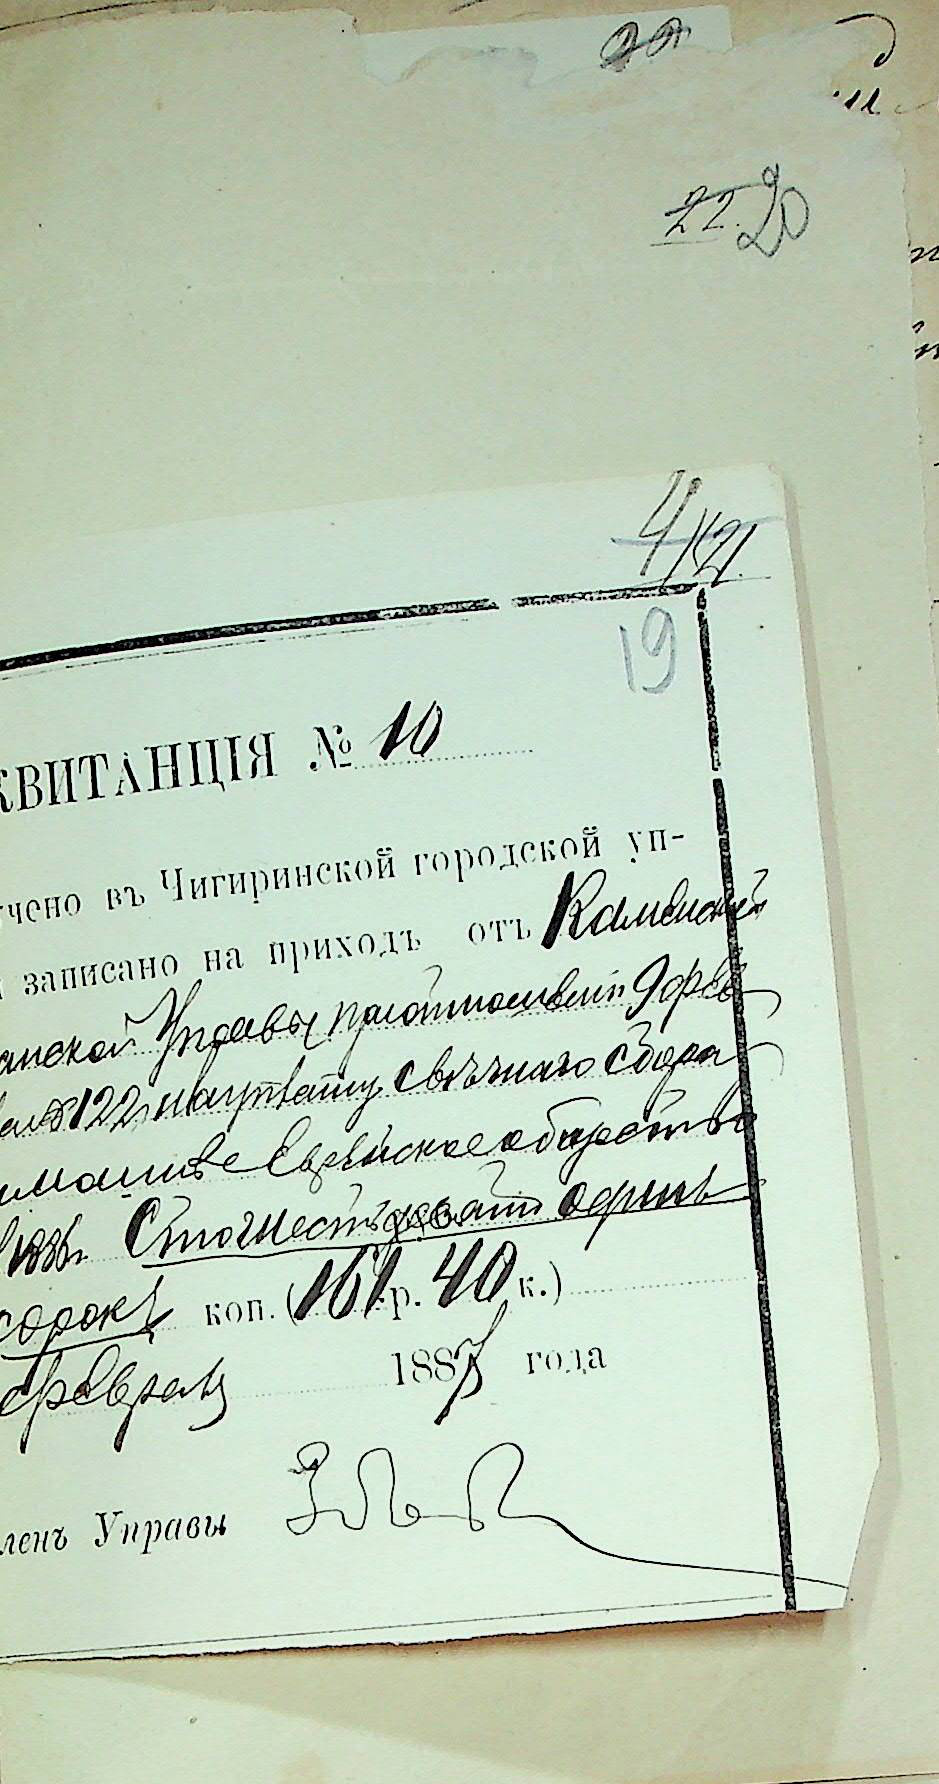 22. 20
4/121.
19
КВИТАНЦІЯ № 10
учено въ Чигиринской городской уп-
и записано на приходъ отъ Каменской
анской Управы при отношеніи 9 фев
за № 122 на уплату свѣчнаго сбора
Еврейское общество
1886 г. Сто шестьдесятъ одинъ
сорокъ коп. (161 р. 40 к.)
февраля 1887 года
ленъ Управы